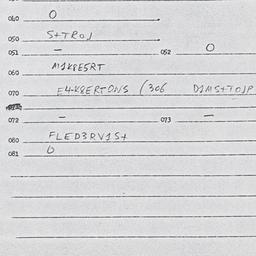 040 O
050 S+TROJ
051 – 052 O
060 M1K8E5RT
070 E4K8ERTONS (306 D1MS+TOJP
072 – 073 –
080 FLED3RV1S+
081 O